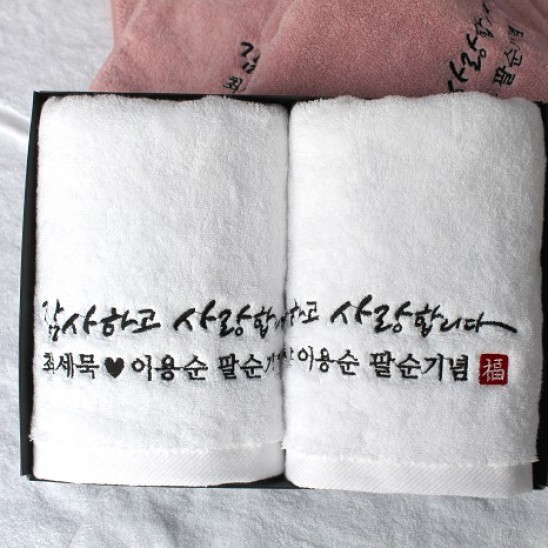 감사하고 사랑합
하고 사랑합니다
최세묵♥이용순 팔순기
이용순 팔순기념 福
사랑
팔순